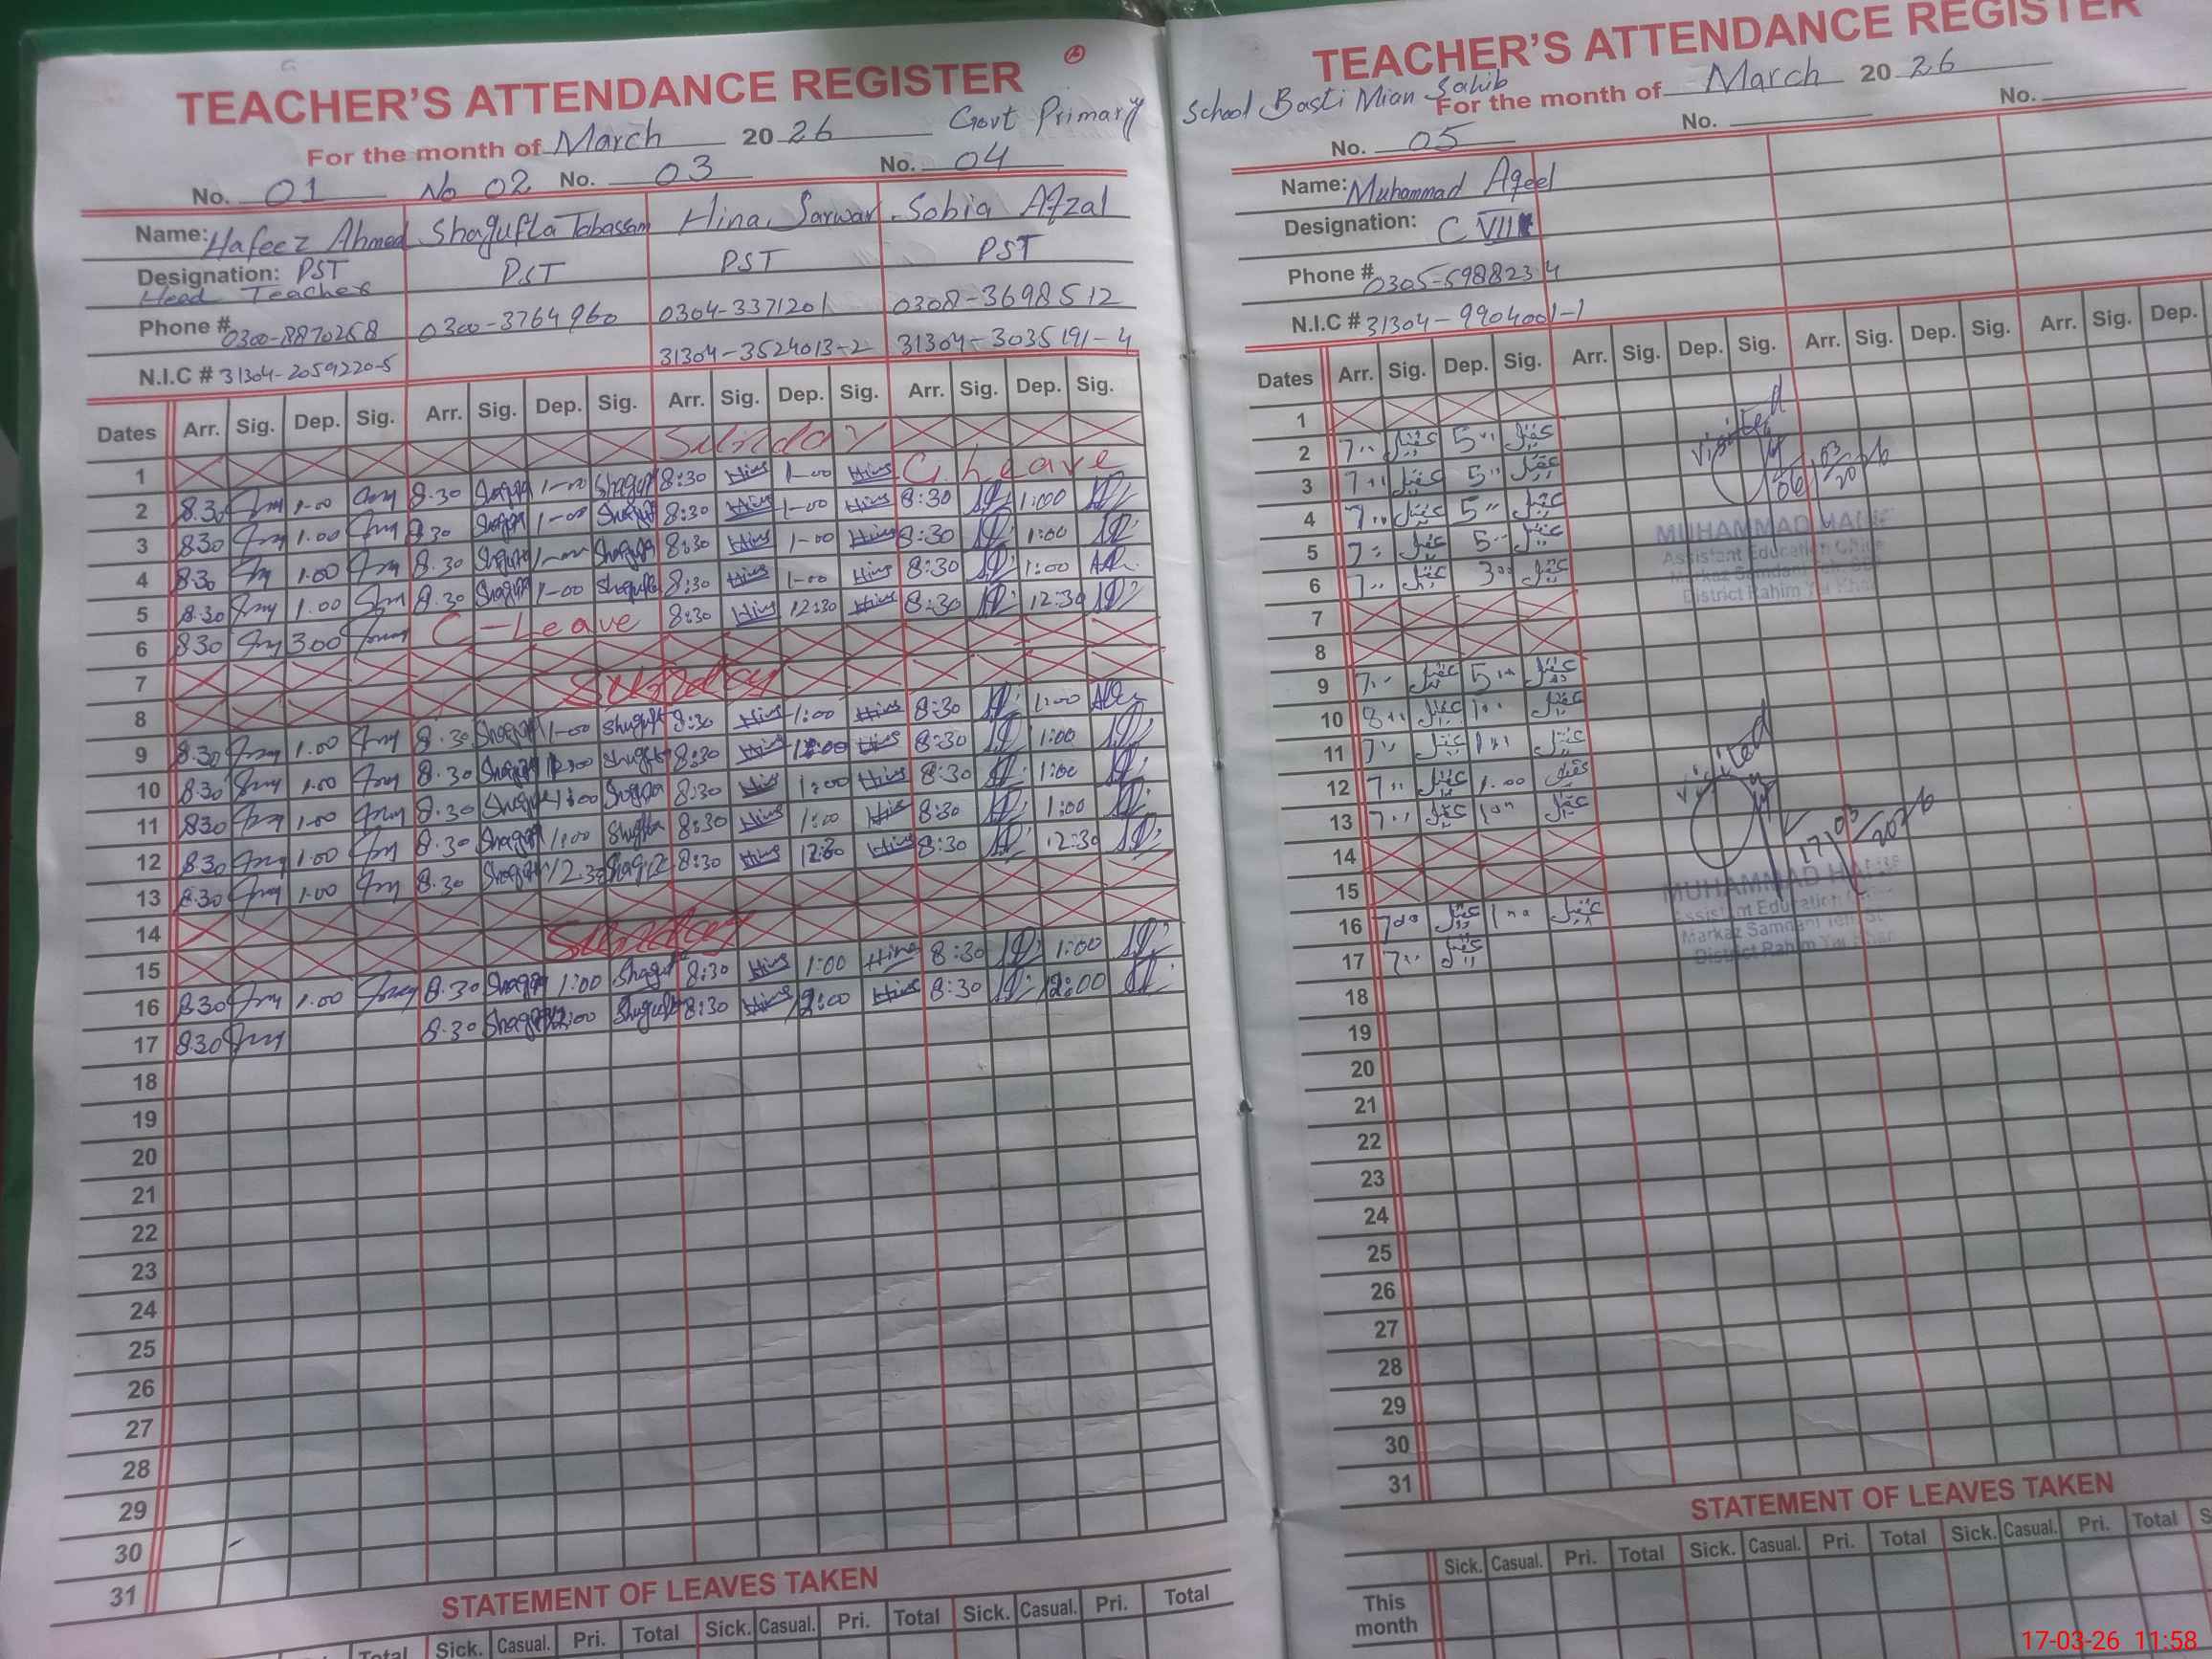 TEACHER'S ATTENDANCE REGISTER
For the month of March 2026 Govt Primary
No. 01 No 02 No. 03 No. 04
Name: Hafeez Ahmed Shagufta Tabassam Hina Sarwar Sobia Afzal
Designation: PST PST PST PST
Head Teacher
Phone # 0300-8870258 0300-3764960 0304-3371201 0308-3698512
N.I.C # 31304-2059220-5 31304-3524013-2 31304-3035191-4
Dates Arr. Sig. Dep. Sig. Arr. Sig. Dep. Sig. Arr. Sig. Dep. Sig. Arr. Sig. Dep. Sig.
1 Sunday
2 8.30 1.00 8.30 1-00 8:30 Hina 1-00 Hina C. Leave
3 8.30 1.00 8.30 1-00 8:30 Hina 1-00 Hina 8:30 1:00
4 8.30 1.00 8.30 1-00 8:30 Hina 1-00 Hina 8:30 1:00
5 8.30 1.00 8.30 1-00 8:30 Hina 1-00 Hina 8:30 1:00
6 8.30 3.00 C-Leave 8:30 Hina 12:30 Hina 8:30 12:30
7
8 Sunday
9 8.30 1.00 8.30 1-00 8:30 Hina 1:00 Hina 8:30 1:00
10 8.30 1.00 8.30 8:30 Hina Hina 8:30 1:00
11 8.30 1.00 8.30 1:00 8:30 Hina 1:00 Hina 8:30 1:00
12 8.30 1.00 8.30 1:00 8:30 Hina 1:00 Hina 8:30 1:00
13 8.30 1.00 8.30 12.30 8:30 Hina 12:30 Hina 8:30 12:30
14
15 Sunday
16 8.30 1.00 8.30 1:00 8:30 Hina 1:00 Hina 8:30 1:00
17 8.30 8.30 12:00 8:30 Hina 12:00 Hina 8:30 12:00
18
19
20
21
22
23
24
25
26
27
28
29
30
31
STATEMENT OF LEAVES TAKEN
Total Sick. Casual. Pri. Total Sick. Casual. Pri. Total Sick. Casual. Pri. Total
TEACHER'S ATTENDANCE REGISTER
School Basti Mian Sahib For the month of March 2026
No. 05 No. No.
Name: Muhammad Aqeel
Designation: C VIII
Phone # 0305-5988234
N.I.C # 31304-9904001-1
Dates Arr. Sig. Dep. Sig. Arr. Sig. Dep. Sig. Arr. Sig. Dep. Sig. Arr. Sig. Dep.
1
2 7.. عقیل 5.. عقیل
3 7.. عقیل 5.. عقیل
4 7.. عقیل 5.. عقیل
5 7.. عقیل 5.. عقیل
6 7.. عقیل 3.. عقیل
7
8
9 7.. عقیل 5.. عقیل
10 8.. عقیل 1.. عقیل
11 7.. عقیل 1.. عقیل
12 7.. عقیل 1.00 عقیل
13 7.. عقیل 1.. عقیل
14
15
16 7.. عقیل 1.. عقیل
17 7.. عقیل
18
19
20
21
22
23
24
25
26
27
28
29
30
31
Visited
06/03/2026
MUHAMMAD
Assistant Education
Markaz Samdani
District Rahim Yar Khan
Visited
17/03/2026
MUHAMMAD
Assistant Education
Markaz Samdani
District Rahim Yar Khan
STATEMENT OF LEAVES TAKEN
Sick. Casual. Pri. Total Sick. Casual. Pri. Total Sick. Casual. Pri. Total
This month
17-03-26 11:58